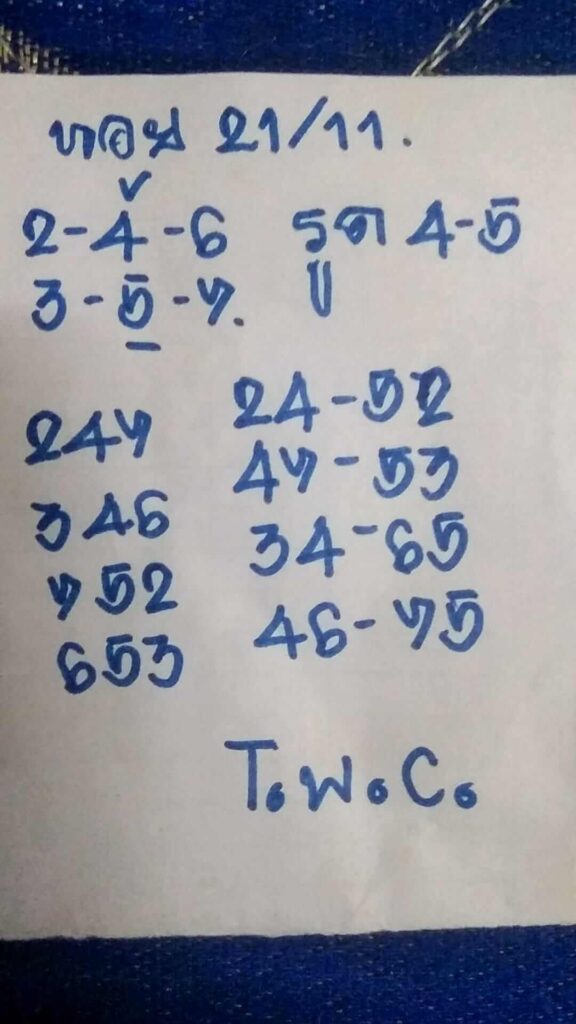 หอย 21/11.
2-4-6 รูด 4-5
3-5-7.
247 24-52
346 47-53
752 34-65
653 46-75
T.W.C.